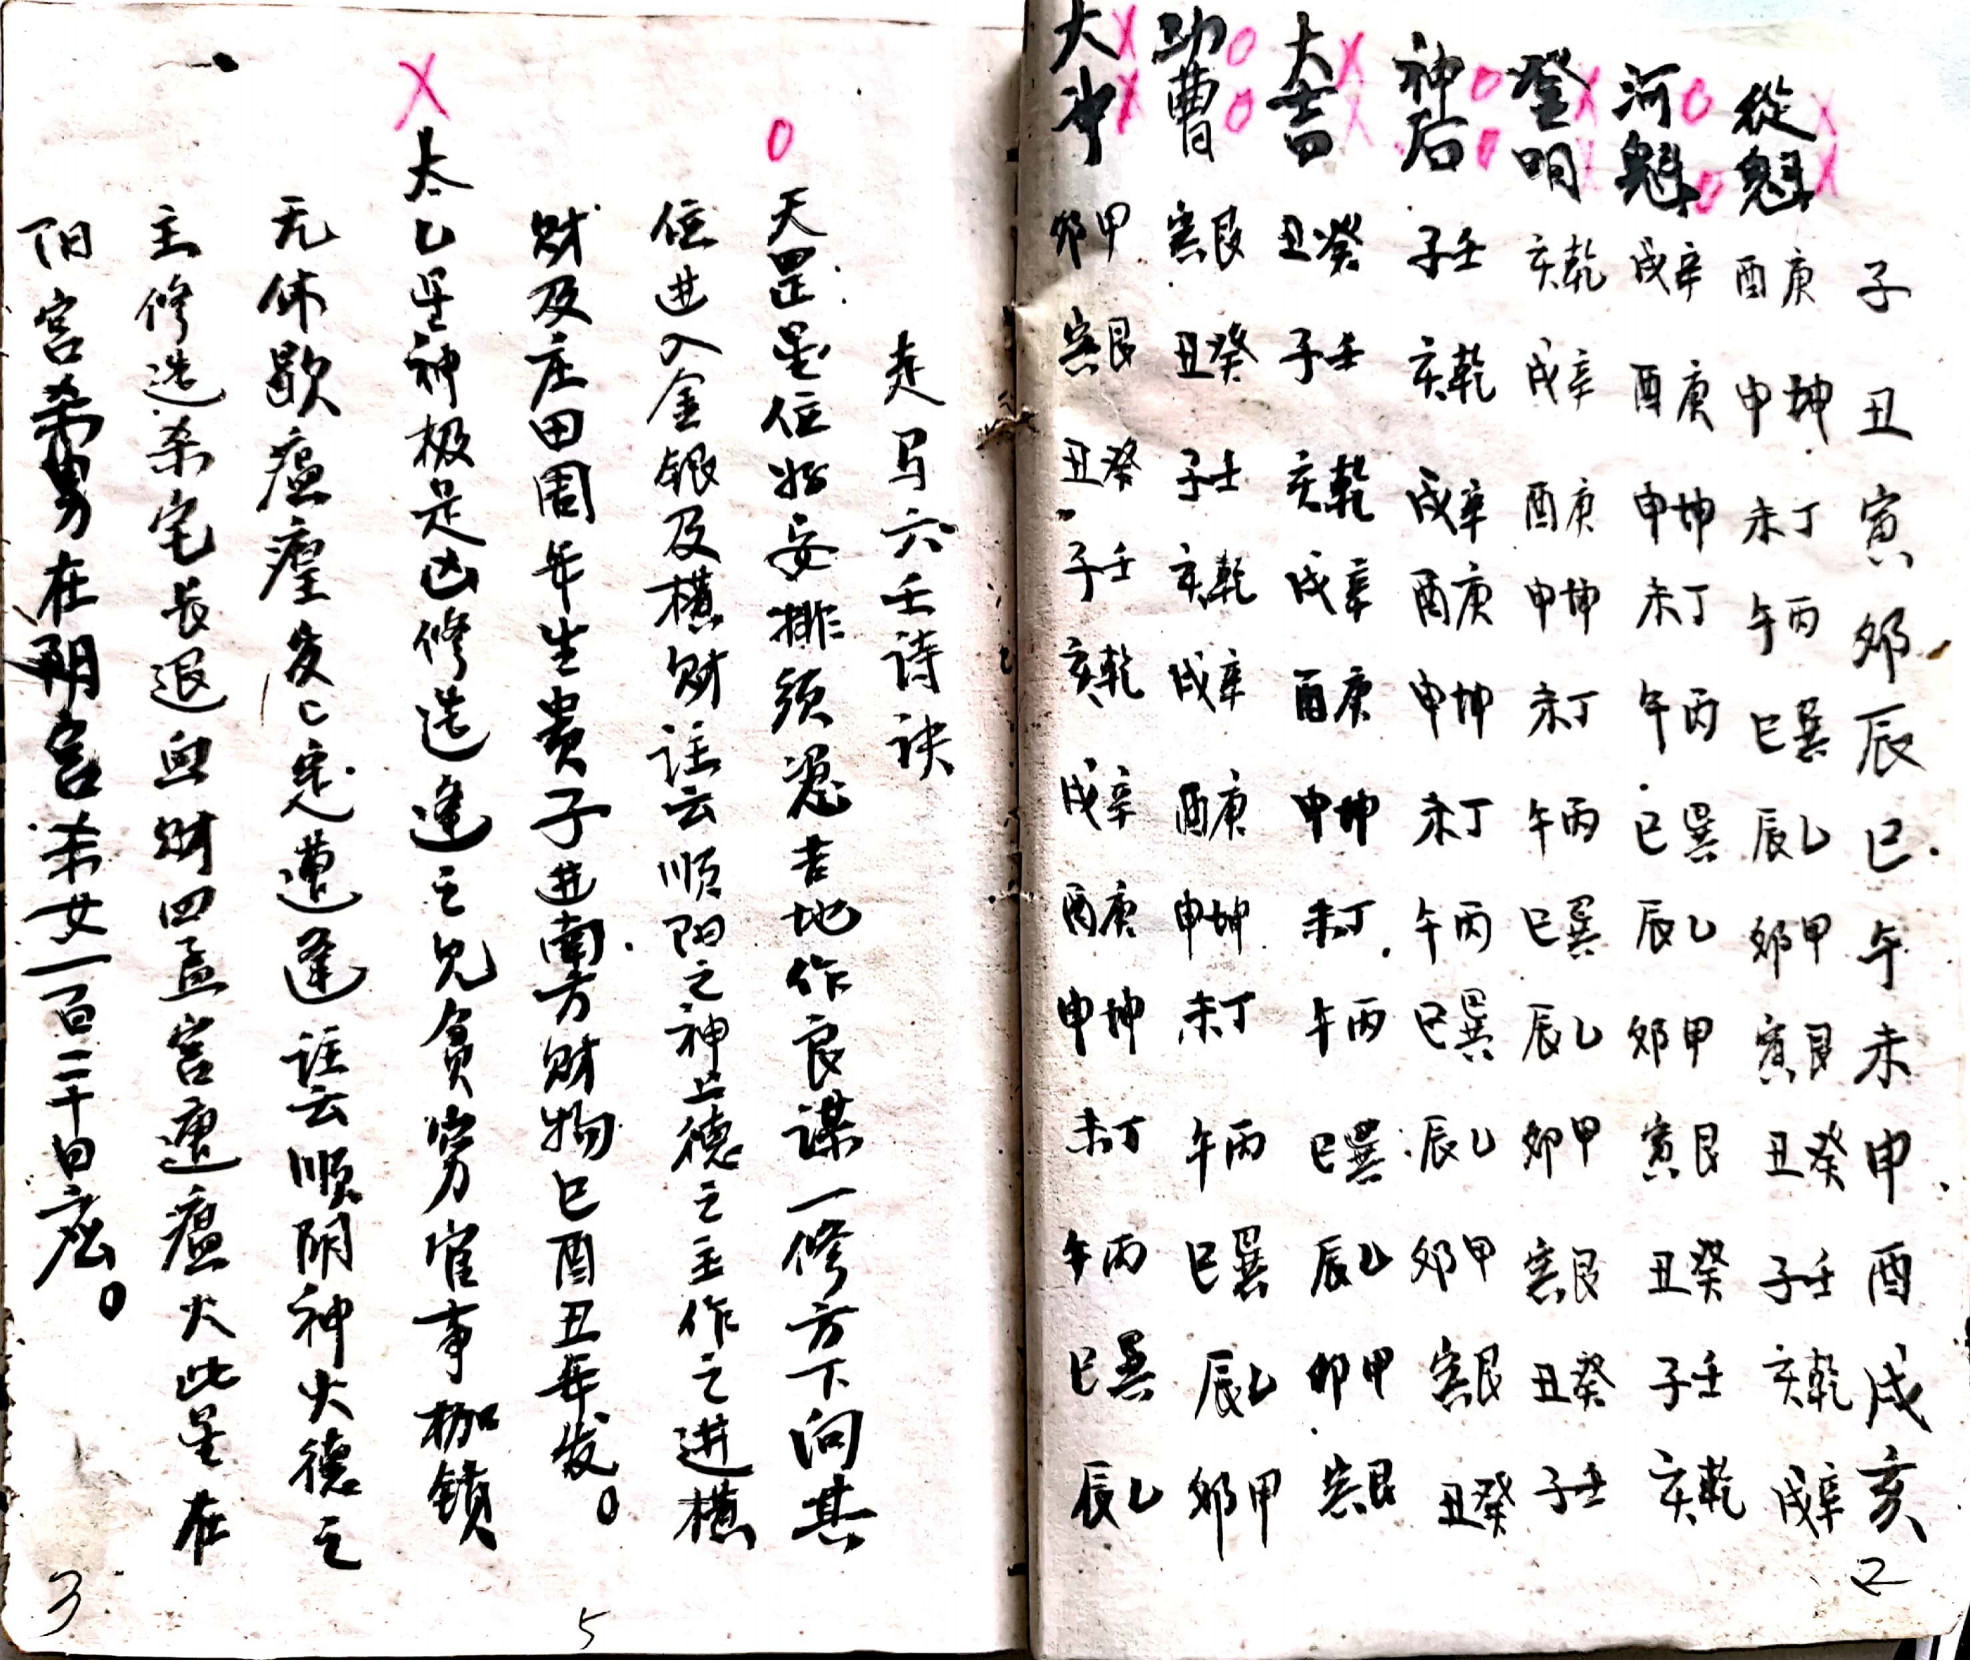 子 丑 寅 卯 辰 巳 午 未 申 酉 戌 亥
從魁 酉庚 申坤 未丁 午丙 巳巽 辰乙 卯甲 寅艮 丑癸 子壬 亥乾 戌辛
河魁 戌辛 酉庚 申坤 未丁 午丙 巳巽 辰乙 卯甲 寅艮 丑癸 子壬 亥乾
登明 亥乾 戌辛 酉庚 申坤 未丁 午丙 巳巽 辰乙 卯甲 寅艮 丑癸 子壬
神后 子壬 亥乾 戌辛 酉庚 申坤 未丁 午丙 巳巽 辰乙 卯甲 寅艮 丑癸
大吉 丑癸 子壬 亥乾 戌辛 酉庚 申坤 未丁 午丙 巳巽 辰乙 卯甲 寅艮
功曹 寅艮 丑癸 子壬 亥乾 戌辛 酉庚 申坤 未丁 午丙 巳巽 辰乙 卯甲
大冲 卯甲 寅艮 丑癸 子壬 亥乾 戌辛 酉庚 申坤 未丁 午丙 巳巽 辰乙
2
走马六壬诗诀
天罡星位好安排须忌吉地作良谋一修方下向其
位进入金银及横财註云顺阳之神上德之主作之进横
财及庄田周年生贵子进南方财物巳酉丑年发。
太乙星神极是凶修造逢之见贫穷官事枷锁
无休歇瘟瘽定遭逢註云顺阴神火德之
主修造杀宅长退血财四孟宫遭瘟火此星在
阳宫杀男在阴宫杀女一百二十日应。
3
5